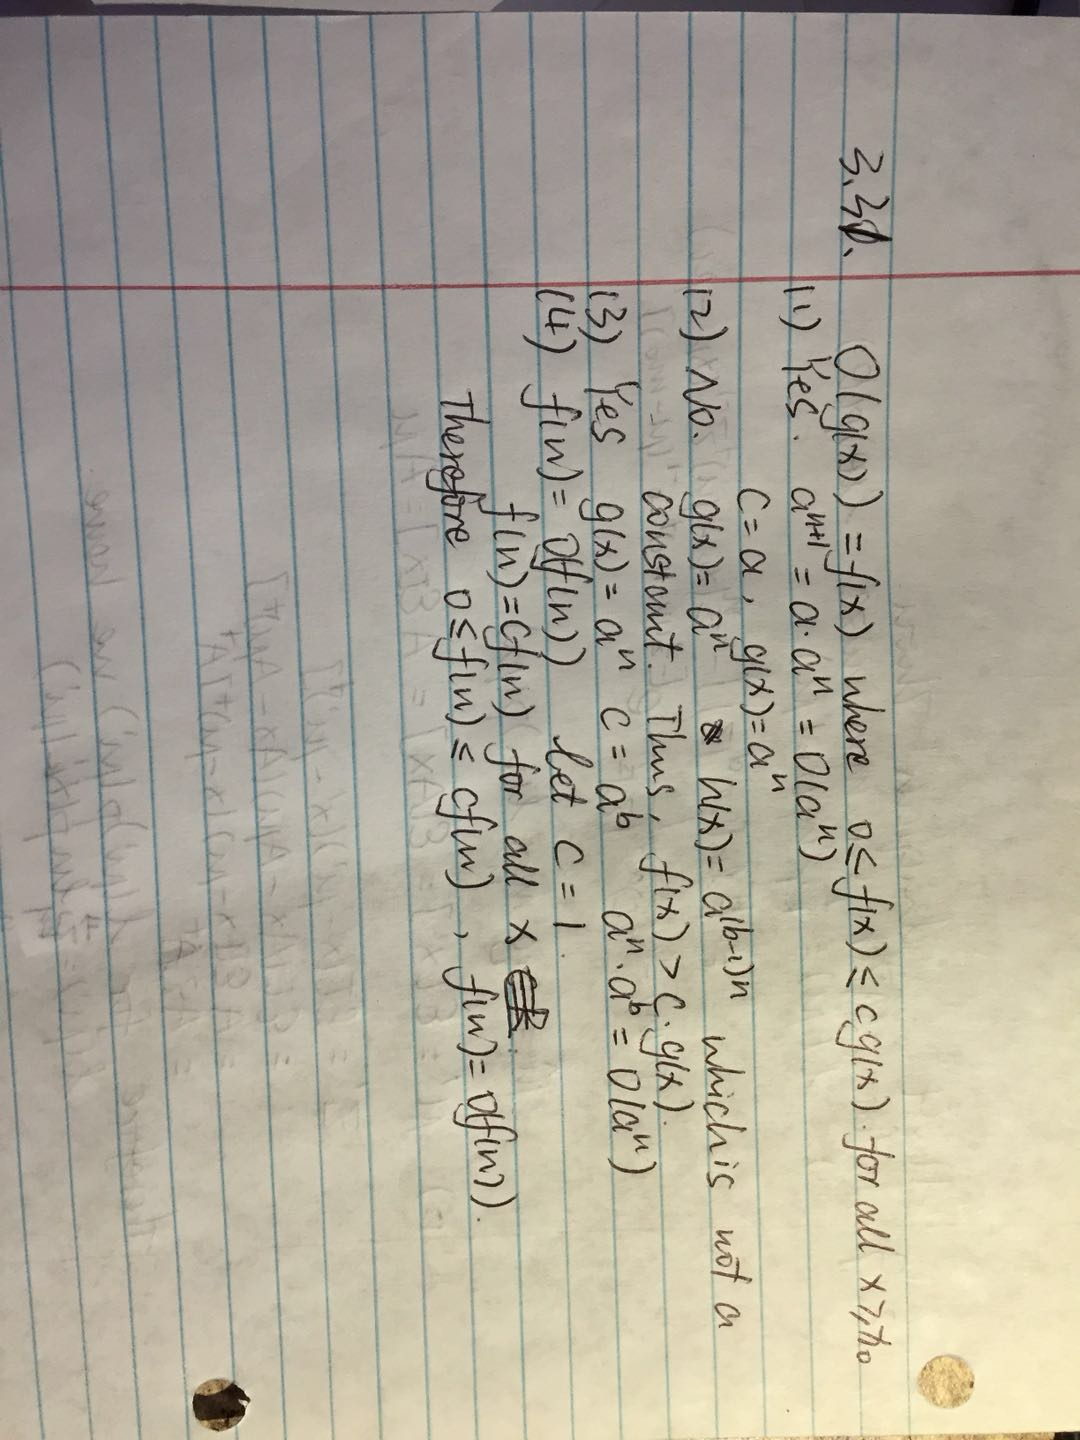 3.31. O(g(x)) = f(x) where 0 ≤ f(x) ≤ cg(x) for all x ≥ x₀
(1) Yes. aⁿ⁺¹ = a·aⁿ = O(aⁿ)
C = a, g(x) = aⁿ
(2) No. g(x) = aⁿ h(x) = a⁽ᵇ⁻¹⁾ⁿ which is not a
constant. Thus, f(x) > c·g(x).
(3) Yes g(x) = aⁿ C = aᵇ aⁿ·aᵇ = O(aⁿ)
(4) f(n) = O(f(n)) let C = 1.
f(n) = cf(n) for all x
Therefore 0 ≤ f(n) ≤ cf(n), f(n) = O(f(n)).